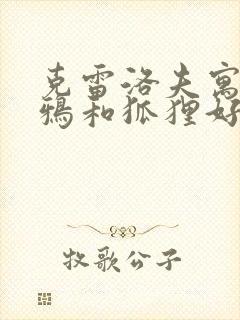 克雷洛夫寓
鸦和狐狸好
牧歌公子